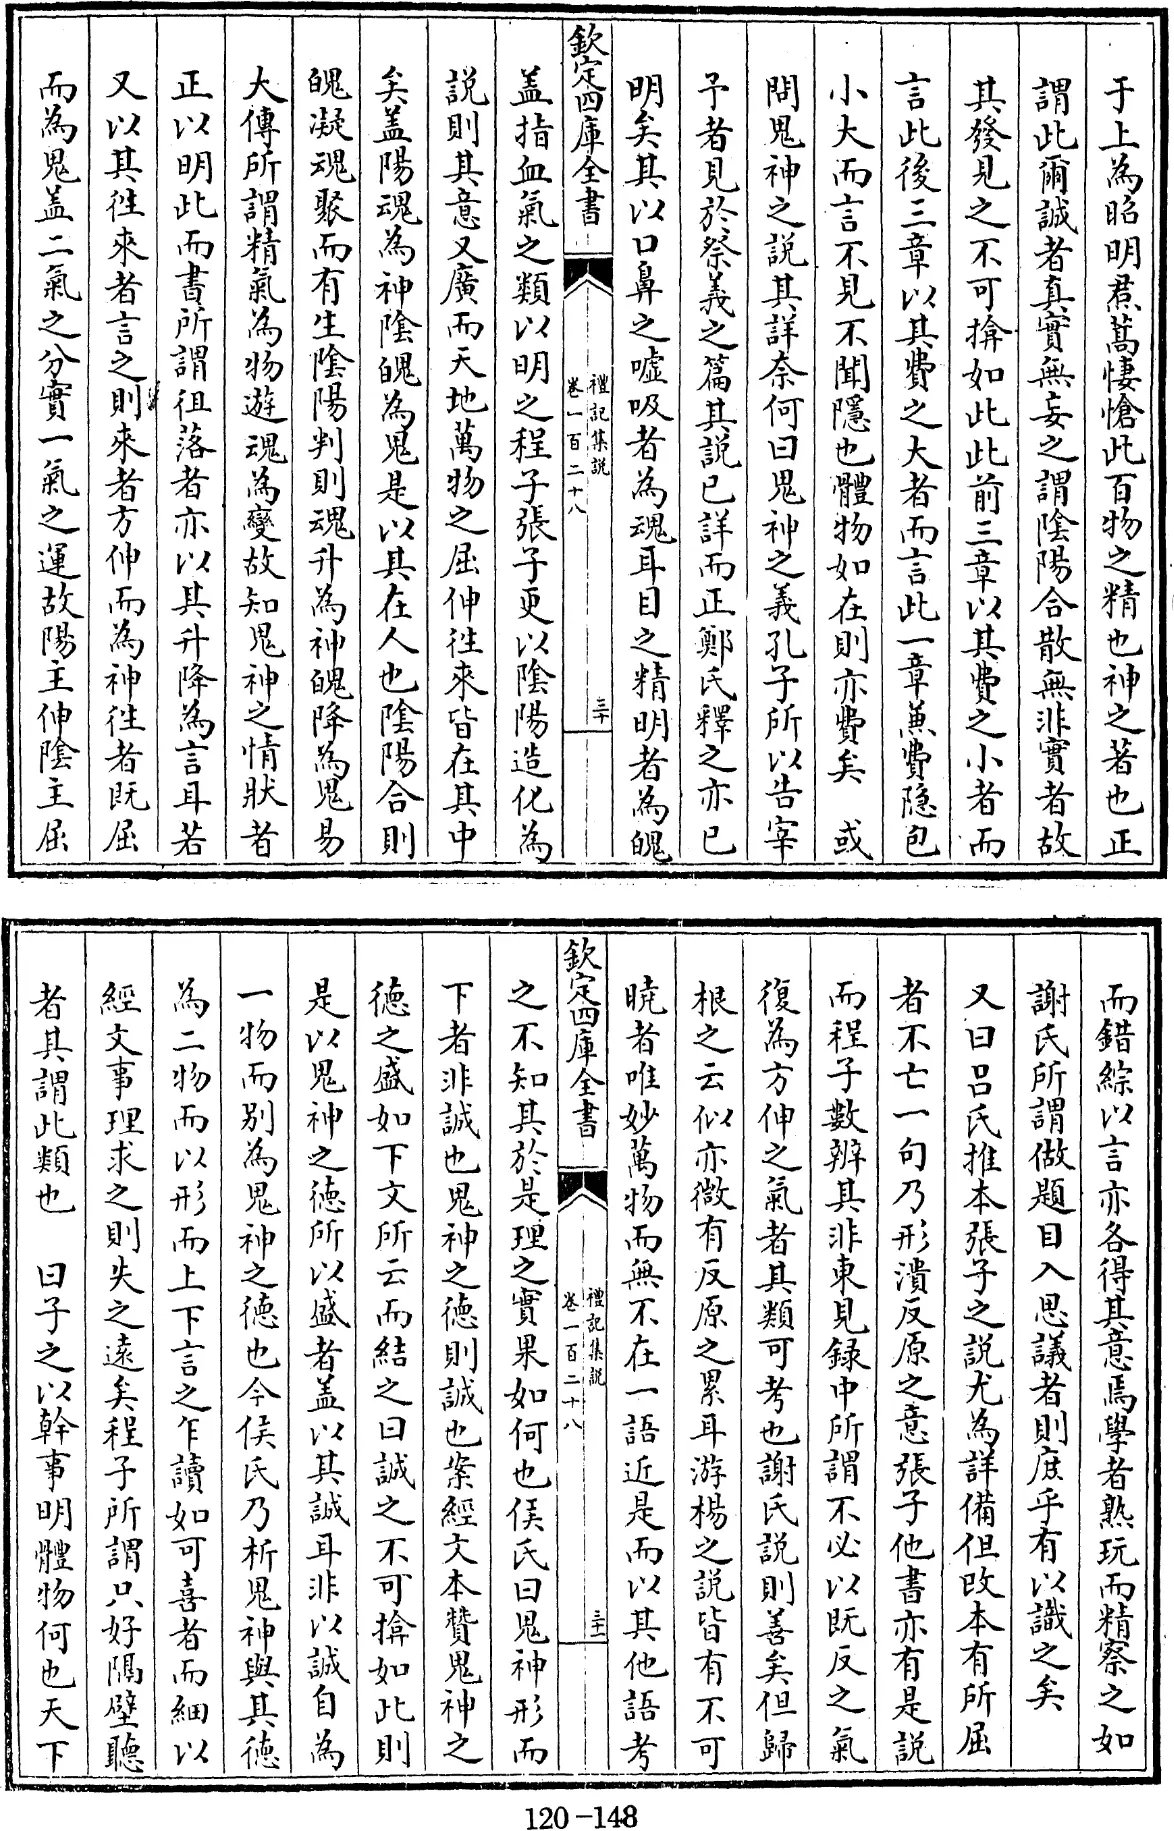 于上為昭明焄蒿悽愴此百物之精也神之著也正
謂此爾誠者真實無妄之謂陰陽合散無非實者故
其發見之不可揜如此此前三章以其費之小者而
言此後三章以其費之大者而言此一章兼費隐包
小大而言不見不聞隱也體物如在則亦費矣　或
問鬼神之説其詳奈何曰鬼神之義孔子所以告宰
予者見於祭義之篇其説已詳而正鄭氏釋之亦已
明矣其以口鼻之嘘吸者為魂耳目之精明者為魄
欽定四庫全書
禮記集説
卷一百二十八
三十
盖指血氣之類以明之程子張子更以陰陽造化為
説則其意又廣而天地萬物之屈伸徃來皆在其中
矣盖陽魂為神陰魄為鬼是以其在人也陰陽合則
魄凝魂聚而有生陰陽判則魂升為神魄降為鬼易
大傳所謂精氣為物遊魂為變故知鬼神之情狀者
正以明此而書所謂徂落者亦以其升降為言耳若
又以其徃來者言之則來者方伸而為神徃者既屈
而為鬼盖二氣之分實一氣之運故陽主伸陰主屈
而錯綜以言亦各得其意焉學者熟玩而精察之如
謝氏所謂做題目入思議者則庶乎有以識之矣
又曰吕氏推本張子之説尤為詳備但改本有所屈
者不亡一句乃形潰反原之意張子他書亦有是説
而程子數辨其非東見録中所謂不必以既反之氣
復為方伸之氣者其類可考也謝氏説則善矣但歸
根之云似亦微有反原之累耳游楊之説皆有不可
暁者唯妙萬物而無不在一語近是而以其他語考
欽定四庫全書
禮記集説
卷一百二十八
三十一
之不知其於是理之實果如何也侯氏曰鬼神形而
下者非誠也鬼神之徳則誠也案經文本贊鬼神之
徳之盛如下文所云而結之曰誠之不可揜如此則
是以鬼神之徳所以盛者盖以其誠耳非以誠自為
一物而别為鬼神之徳也今侯氏乃析鬼神與其徳
為二物而以形而上下言之乍讀如可喜者而細以
經文事理求之則失之遠矣程子所謂只好隔壁聽
者其謂此類也　曰子之以幹事明體物何也天下
120-148